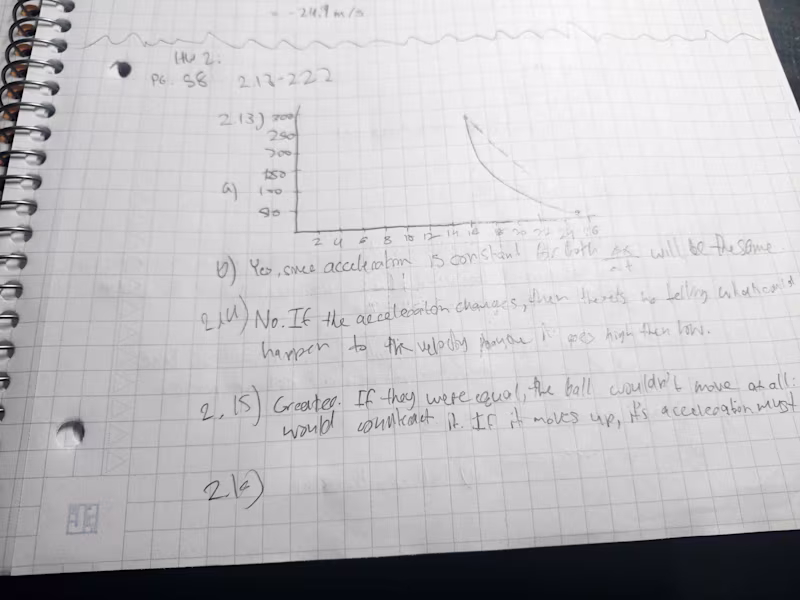 = -24.9 m/s
HW 2.
PG. 58 2.13-222
2.13) 300
250
200
150
a) 100
50
2 4 6 8 10 12 14 16 18 20 22 24 26
b) Yes, since acceleration is constant for both Δx/Δt will be the same
2.14) No. If the acceleration changes, then no telling what could
happen to the velocity it goes high then low.
2.15) Greater. If they were equal, the ball wouldn't move at all:
would counteract it. If it moves up, it's acceleration must
2.16)